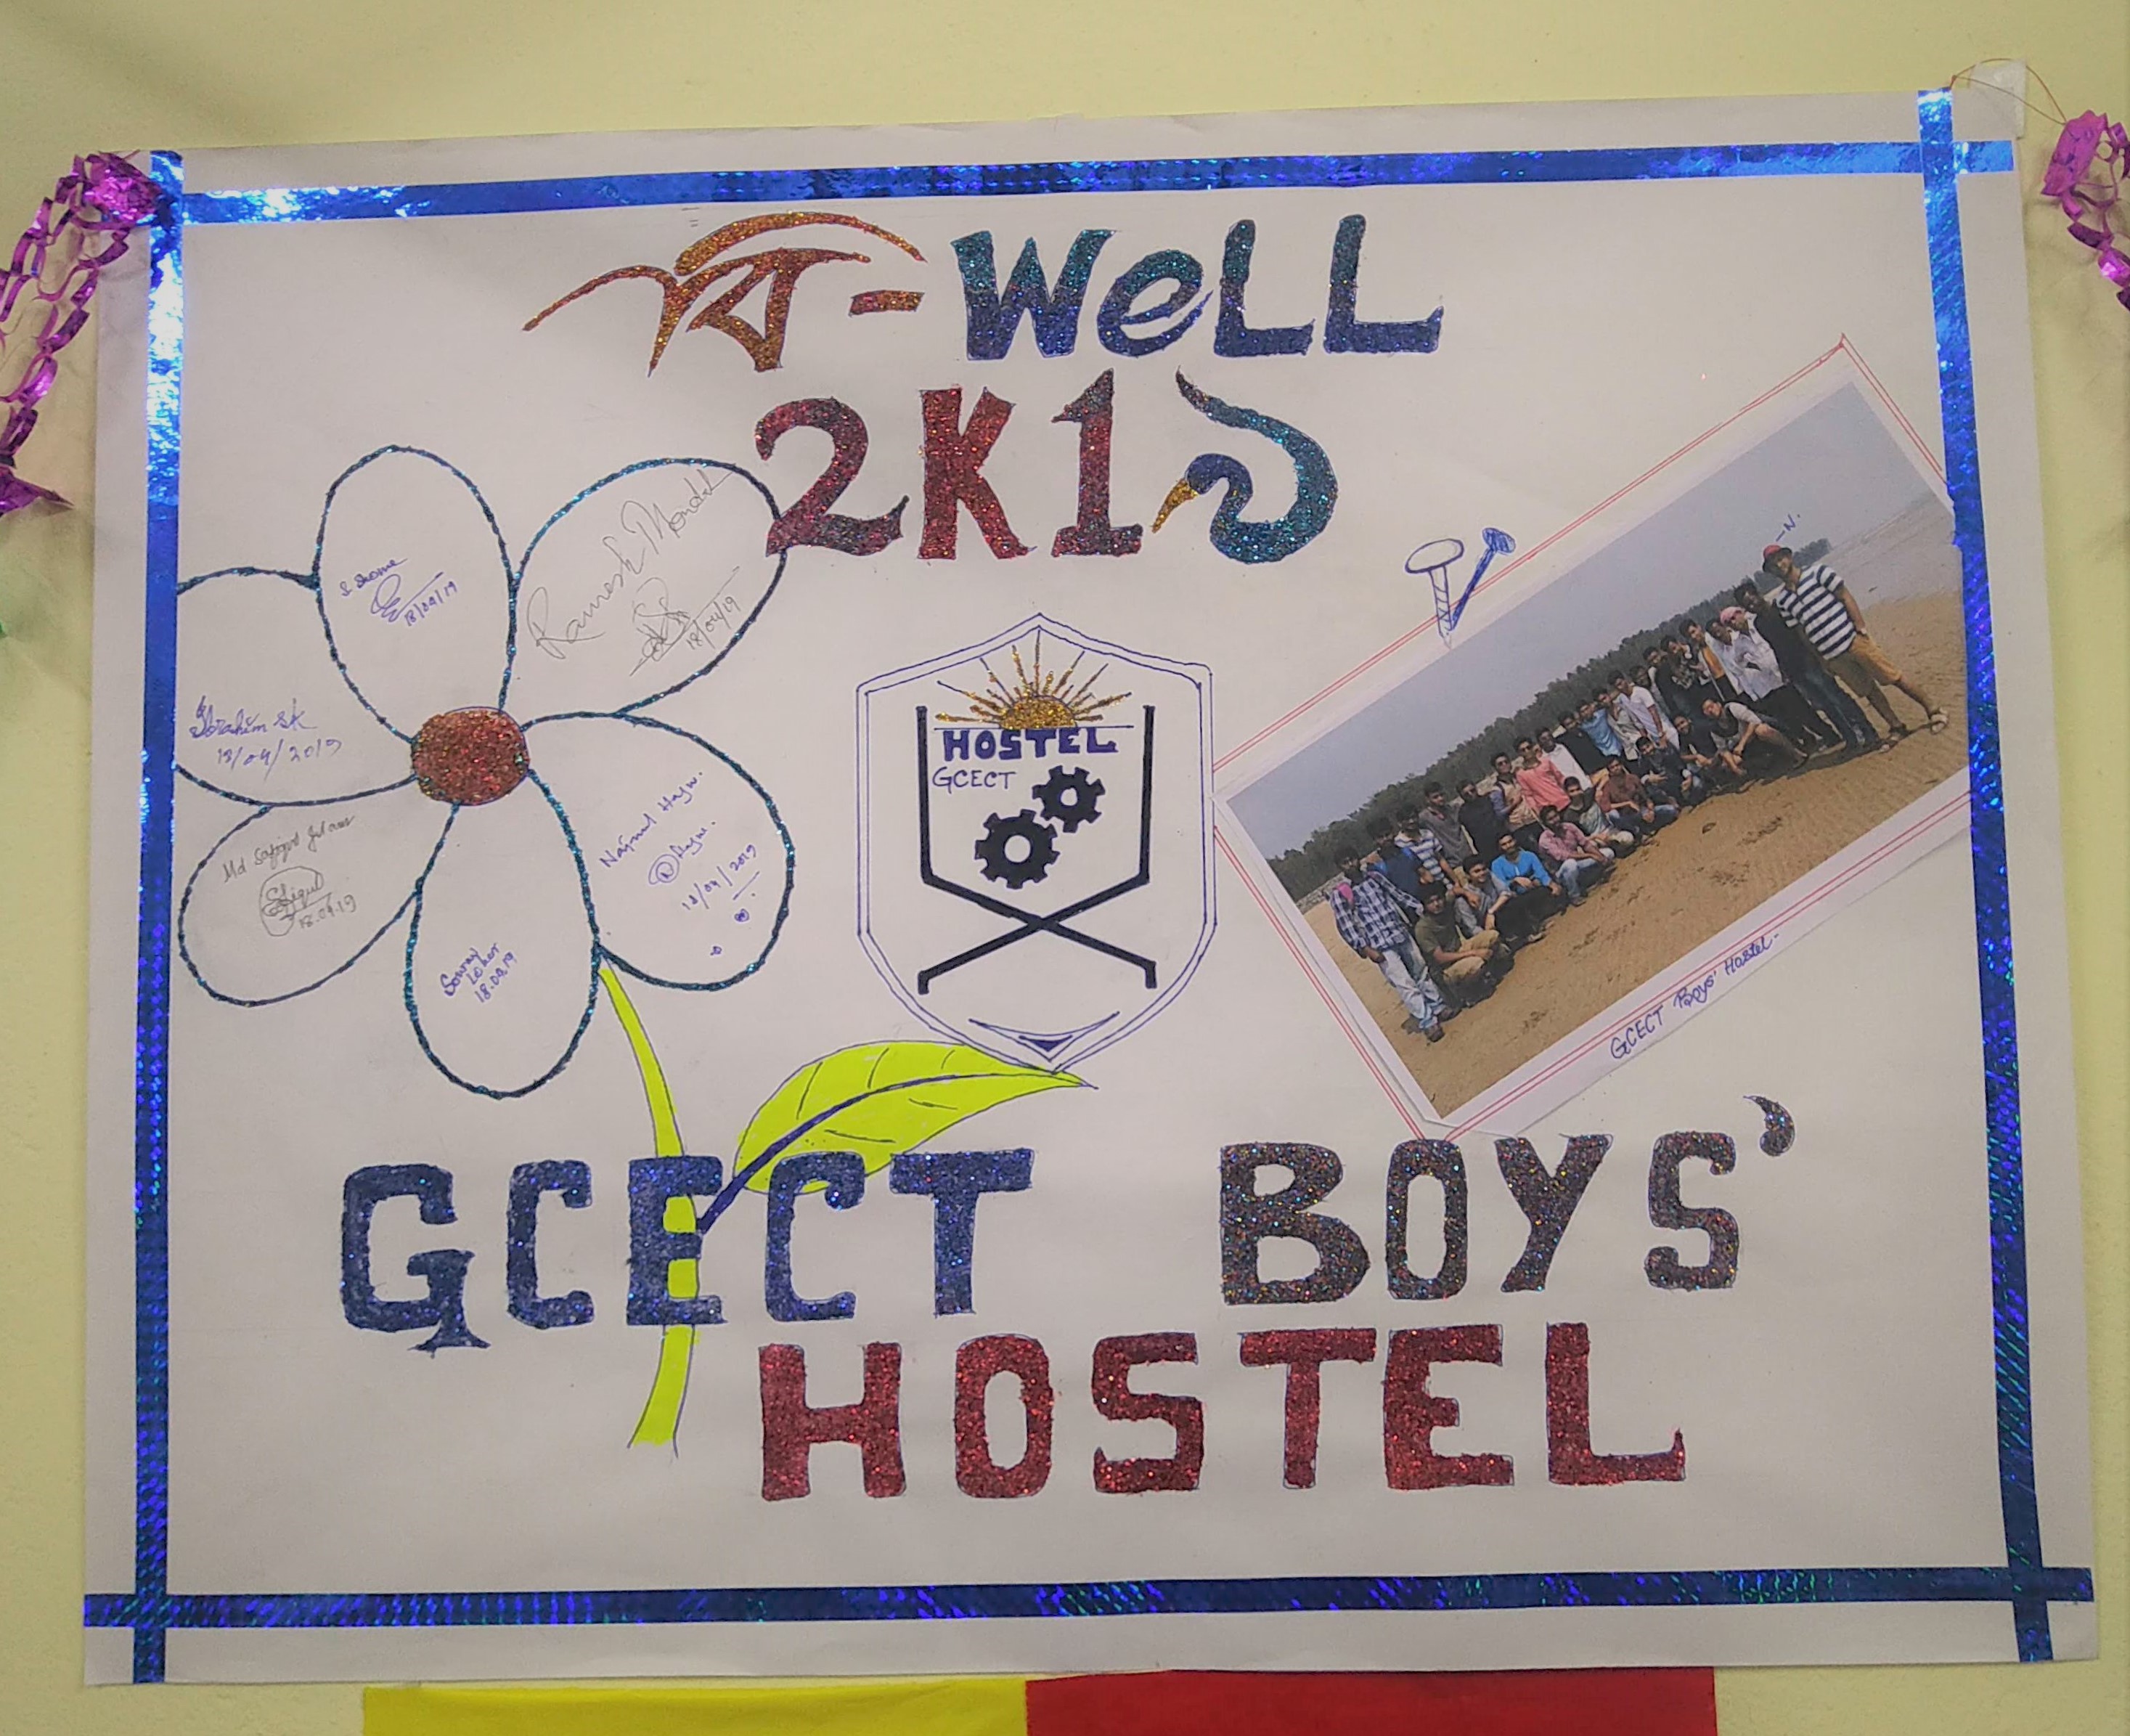 বি-WeLL
2K1৯
S. Shome
18/04/19
Ramesh Mondal
18/04/19
Ibrahim SK
18/04/2019
Md Safiqul Islam
18.04.19
Sourav
Lohar
18.04.19
18/04/2019
HOSTEL
GCECT
GCECT Boys' Hostel-
GCECT BOYS'
HOSTEL